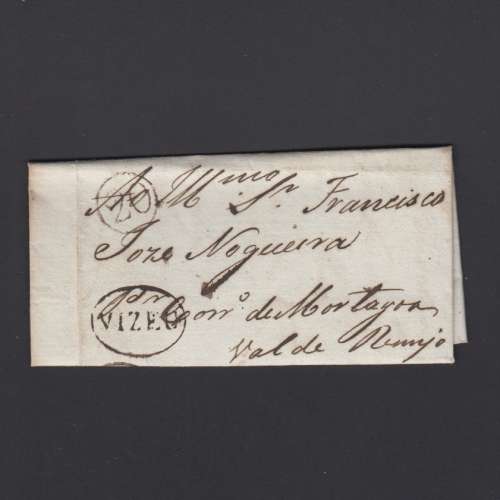 20
Ao Ill.mo Sr. Francisco
Joze Nogueira
pr Corro. de Mortagoa
VIZEU
Val de Remijo